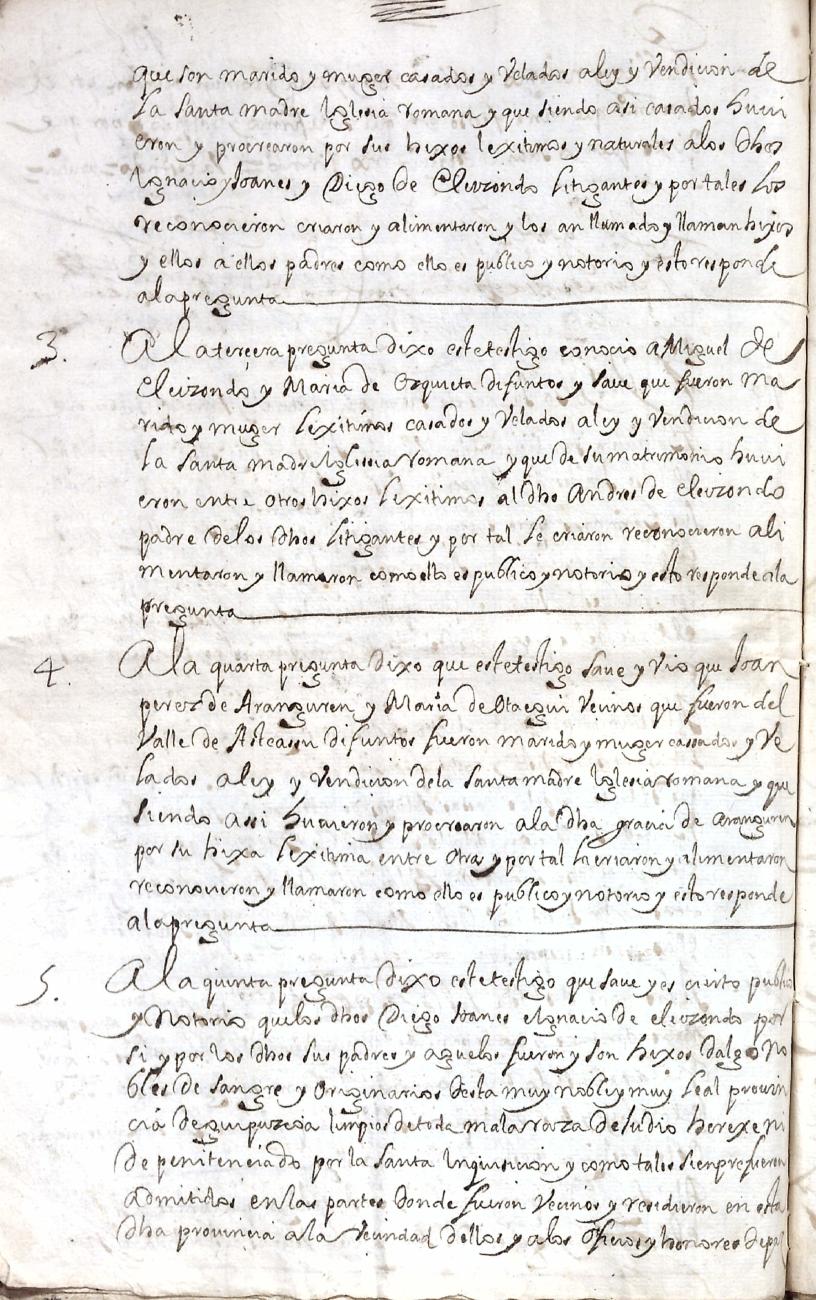 que son marido y muger casados y Velados a ley y Vendicion de
la santa madre Iglesia romana y que siendo asi casados huvi
eron y procrearon por sus hixos lexitimos y naturales a los dhos
Ignacio y Joanes y Diego de Eleizondo litigantes y por tales los
reconocieron criaron y alimentaron y los an llamado y llaman hixos
y ellos a ellos padres como ello es publico y notorio y esto responde
a la pregunta
3. A la terçera pregunta dixo este testigo conocio a Miguel de
Eleizondo y Maria de Ozquieta difuntos y save que fueron ma
rido y muger lexitimos casados y Velados a ley y Vendicion de
la santa madre Iglesia romana y que de su matrimonio huvi
eron entre otros hixos lexitimos al dho Andres de Eleizondo
padre de los dhos litigantes y por tal le criaron reconocieron ali
mentaron y llamaron como ello es publico y notorio y esto responde a la
pregunta
4. A la quarta pregunta dixo que este testigo save y vio que Joan
perez de Aranguren y Maria de Otaegui Vecinos que fueron del
Valle de Asteassu difuntos fueron marido y muger cassados y Ve
lados a ley y Vendicion de la santa madre Iglesia romana y que
siendo assi huvieron y procrearon a la dha gracia de Aranguren
por su hixa lexitima entre otras y por tal la criaron y alimentaron
reconocieron y llamaron como ello es publico y notorio y esto responde
a la pregunta
5. A la quinta pregunta dixo este testigo que save y es cierto publico
y Notorio que los dhos Diego Joanes e Ignacio de eleizondo por
si y por los dhos sus padres y aguelos fueron y son hixos dalgo No
bles de sangre y Originarios desta muy noble y muy leal provin
cia de guipuzcoa limpios de toda mala raza de Judio herexe ni
de penitenciado por la santa Inquisicion y como tales sienpre fueron
admitidos en las partes donde fueron Vecinos y residieron en esta
dha provincia a la Vecindad dellos y a los oficios y honores de paz